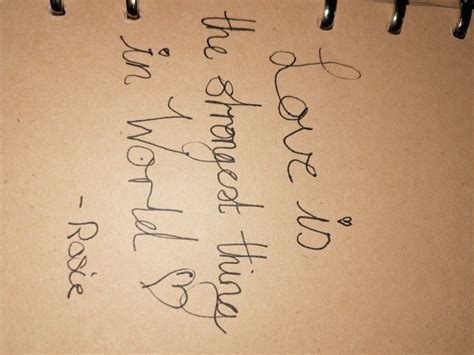 Love is
the strongest thing
in World ♡
- Rosie